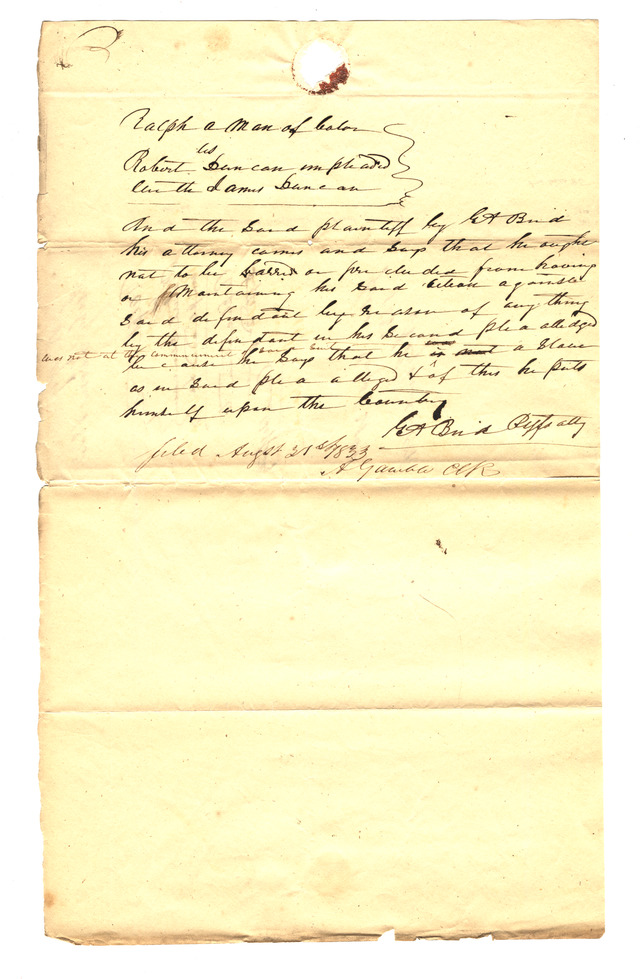 Ralph a Man of Color
vs
Robert Duncan impleaded
with James Duncan
And the Said plaintiff by G A Bird
his attorney comes and Says that he ought
not to be barred or precluded from having
or Maintaining his Said action against
Said defendant by reason of anything
by the defendant in his Second plea alledged
was not at the commencement of
because he Says that he is not a Slave
as in Said plea alleged & of this he puts
himself upon the Country
G A Bird Plffs atty
filed Augst 21st 1833
A Gamble Clk